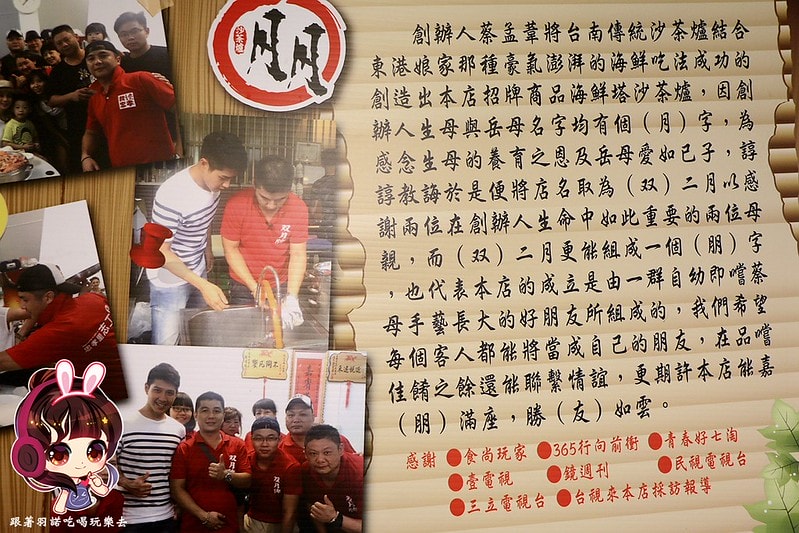 沙茶爐
創辦人蔡孟葦將台南傳統沙茶爐結合
東港娘家那種豪氣澎湃的海鮮吃法成功的
創造出本店招牌商品海鮮塔沙茶爐，因創
辦人生母與岳母名字均有個（月）字，為
感念生母的養育之恩及岳母愛如已子，諄
諄教誨於是便將店名取為（双）二月以感
謝兩位在創辦人生命中如此重要的兩位母
親，而（双）二月更能組成一個（朋）字
，也代表本店的成立是由一群自幼即嚐蔡
母手藝長大的好朋友所組成的，我們希望
每個客人都能將當成自己的朋友，在品嚐
佳餚之餘還能聯繫情誼，更期許本店能嘉
（朋）滿座，勝（友）如雲。
感謝 ●食尚玩家 ●365行向前衝 ●青春好七淘
●壹電視 ●鏡週刊 ●民視電視台
●三立電視台 ●台視來本店採訪報導
双月
跟著羽諾吃喝玩樂去